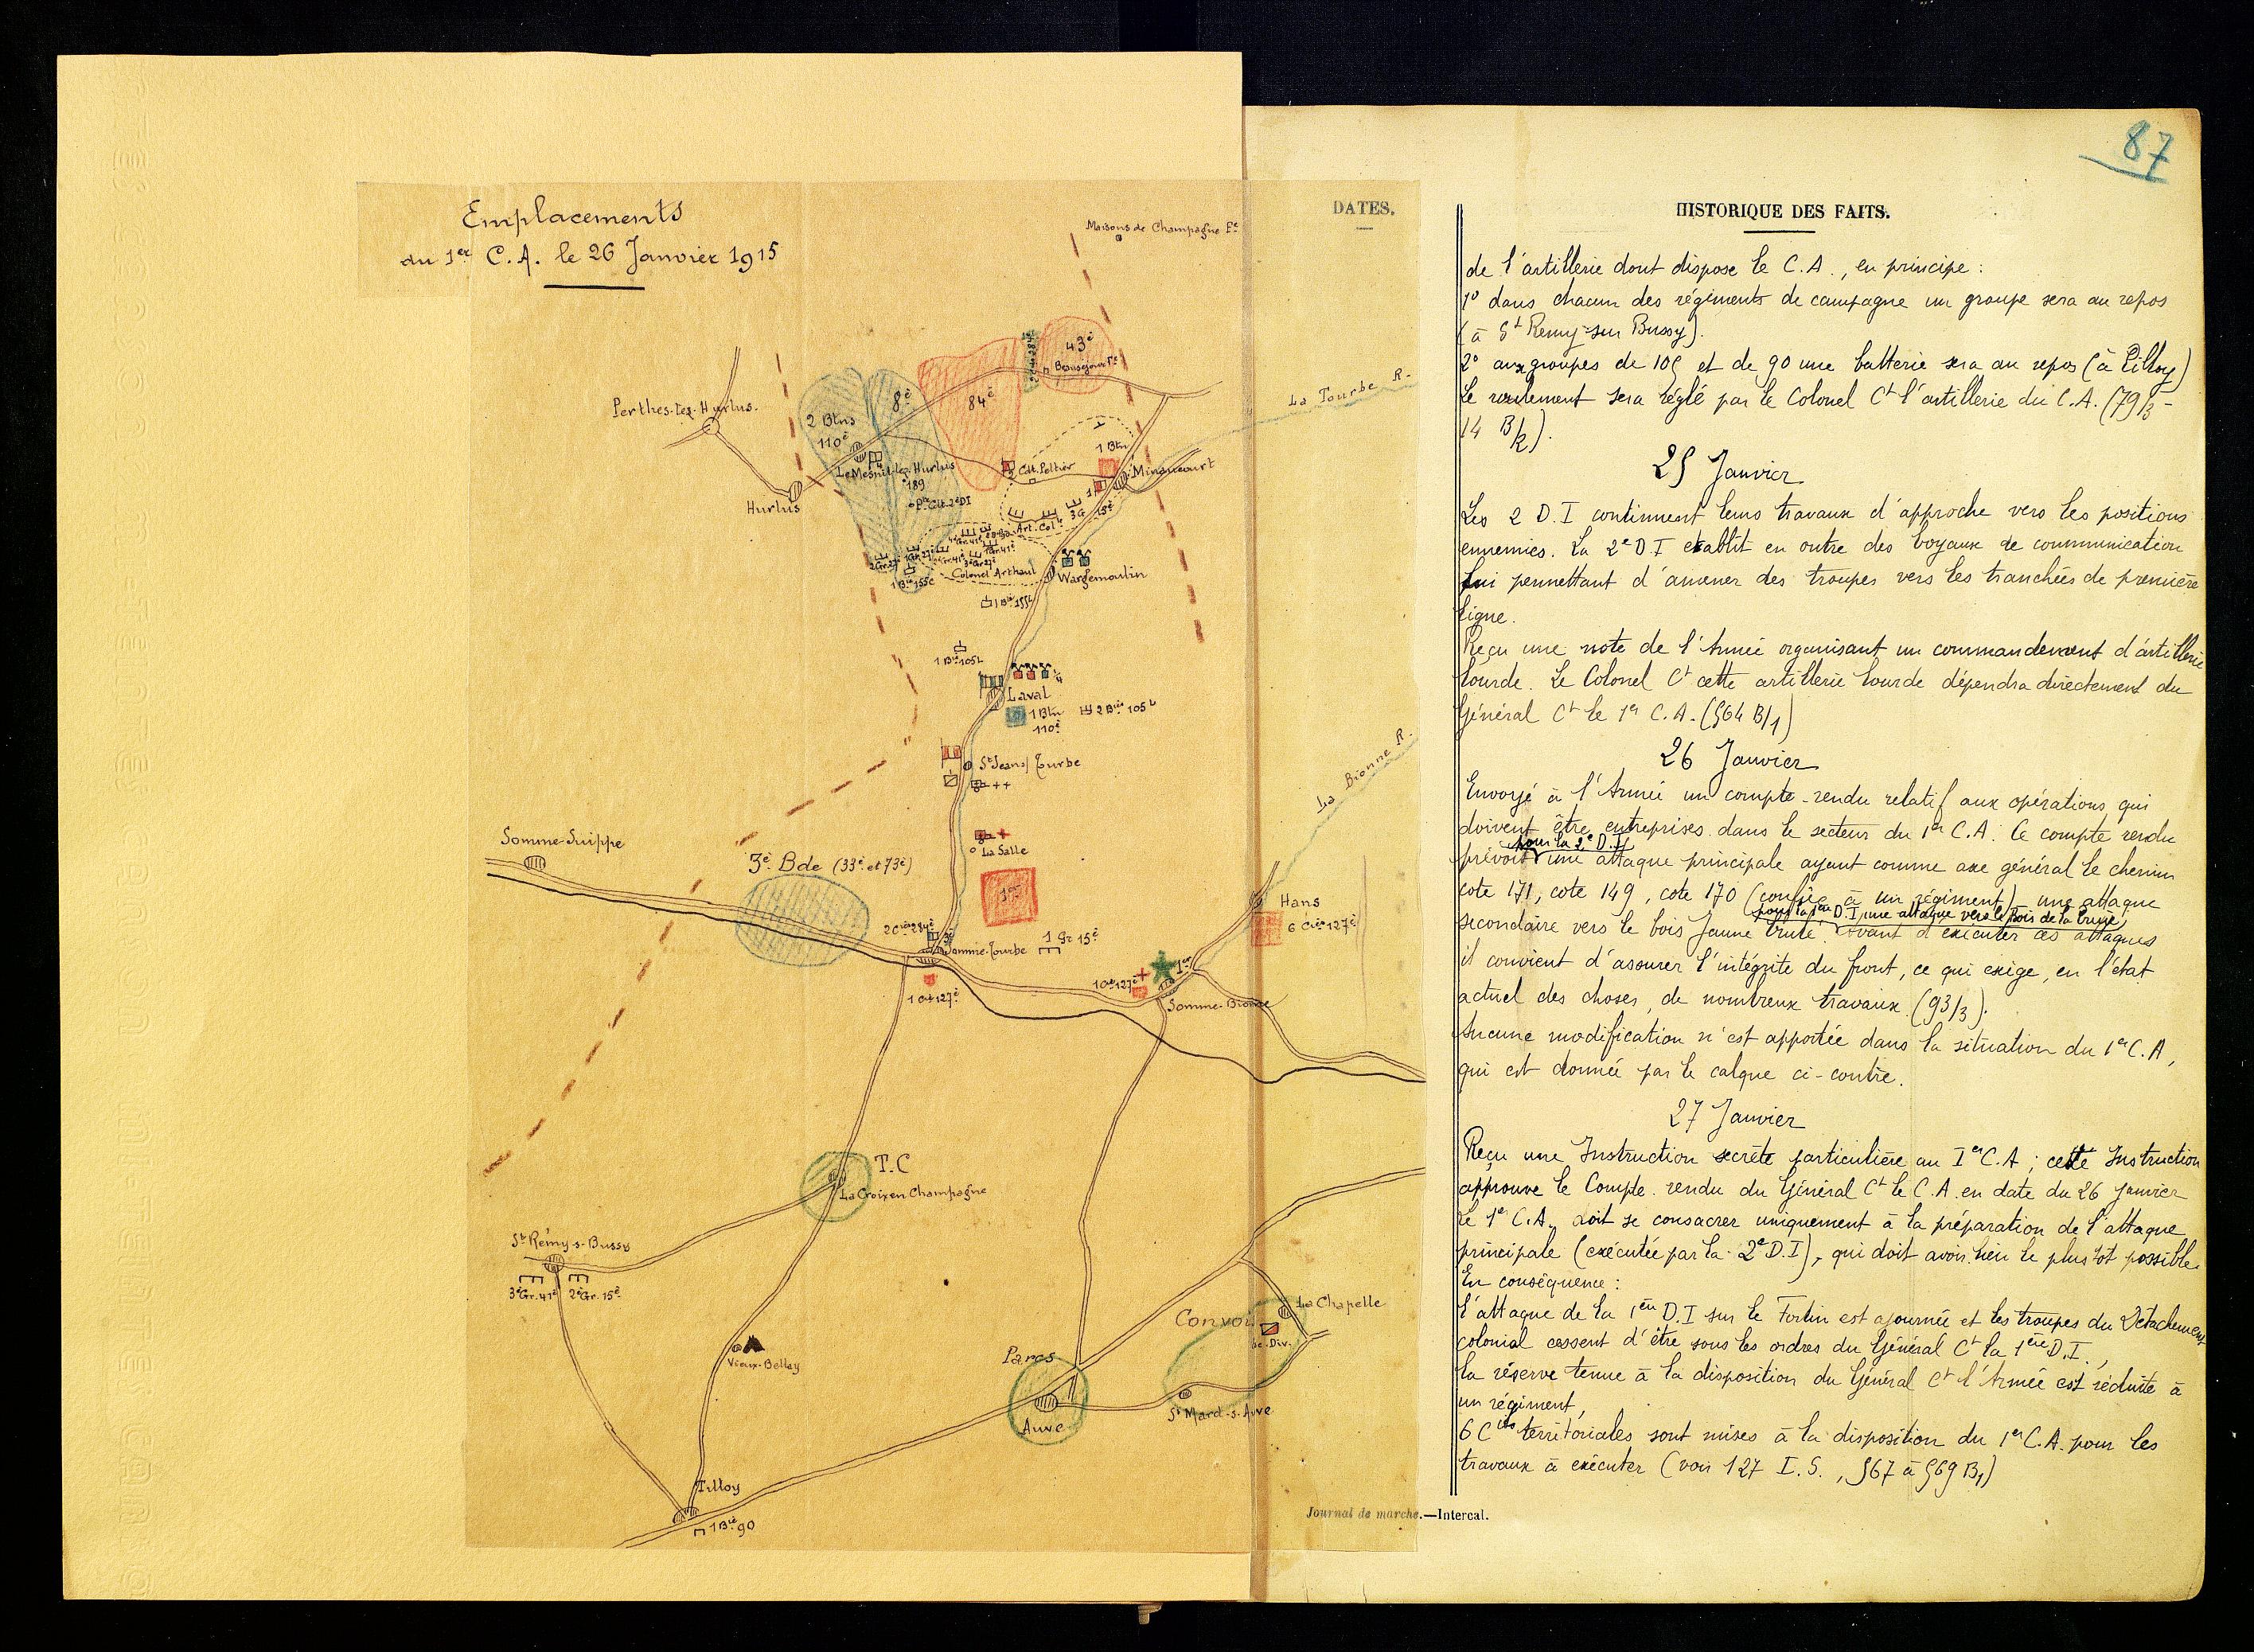 Emplacements
du 1er C.A. le 26 Janvier 1915
Maisons de Champagne Fe
La Tourbe R.
43e
Beauséjour Fe
84e
8e
2 Btns
110e
Perthes-les-Hurlus
Le Mesnil-les-Hurlus
189
Hurlus
Cdt. Peltier
1 Btn
Minaucourt
3 Gr 15e
Art. Cole
Colonel Arthaud
Wargemoulin
1 Bie 155c
1 Bie 155L
1 Bie 105L
Laval
1 Btn
110e
2 Bies 105L
St Jean s/ Tourbe
La Salle
La Bionne R.
Somme-Suippe
3e Bde (33e et 73e)
1er
Hans
6 Cies 127e
2 Cies 284e
Somme-Tourbe
1 Gr 15e
1 Cie 127e
1 Cie 127e
1er
Somme-Bionne
T.C
La Croix en Champagne
St Rémy-s-Bussy
3e Gr. 41e
2e Gr. 15e
Vieux-Bellay
Convoi
La Chapelle
de Div.
Parcs
Auve
St Mard-s-Auve
Tilloy
1 Bie 90
87
DATES.
HISTORIQUE DES FAITS.
de l'artillerie dont dispose le C.A., en principe :
1° dans chacun des régiments de campagne un groupe sera au repos
(à St Remy-sur Bussy).
2° aux groupes de 105 et de 90 une batterie sera au repos (à Tilloy)
Le roulement sera réglé par le Colonel Ct l'artillerie du C.A. (79/3 -
14 B/2).
25 Janvier
Les 2 D.I continuent leurs travaux d'approche vers les positions
ennemies. La 2e D.I établit en outre des boyaux de communication
lui permettant d'amener des troupes vers les tranchées de première
ligne.
Reçu une note de l'Armée organisant un commandement d'artillerie
lourde. Le Colonel Ct cette artillerie lourde dépendra directement du
Général Ct le 1er C.A. (564 B/1)
26 Janvier
Envoyé à l'Armée un compte-rendu relatif aux opérations qui
doivent être entreprises dans le secteur du 1er C.A. Ce compte rendu
pour la 2e D.I
prévoit une attaque principale ayant comme axe général le chemin
cote 171, cote 149, cote 170 (confiée à un régiment) une attaque
pour la 1ère D.I, une attaque vers le bois de la Truie
secondaire vers le bois Jaune brulé. Avant d'exécuter ces attaques
il convient d'assurer l'intégrité du front, ce qui exige, en l'état
actuel des choses, de nombreux travaux (93/3).
Aucune modification n'est apportée dans la situation du 1er C.A,
qui est donnée par le calque ci-contre.
27 Janvier
Reçu une Instruction secrète particulière au Ier C.A ; cette Instruction
approuve le Compte. rendu du Général Ct le C.A. en date du 26 Janvier
Le 1er C.A. doit se consacrer uniquement à la préparation de l'attaque
principale (exécutée par la 2e D.I), qui doit avoir lieu le plus tôt possible.
En conséquence :
l'attaque de la 1ère D.I sur le Fortin est ajournée et les troupes du Détachement
colonial cessent d'être sous les ordres du Général Ct la 1ère D.I.,
la réserve tenue à la disposition du Général Ct l'Armée est réduite à
un régiment,
6 Cies territoriales sont mises à la disposition du 1er C.A. pour les
travaux à exécuter (voir 127 I.S., 567 à 569 B1)
Journal de marche.—Intercal.